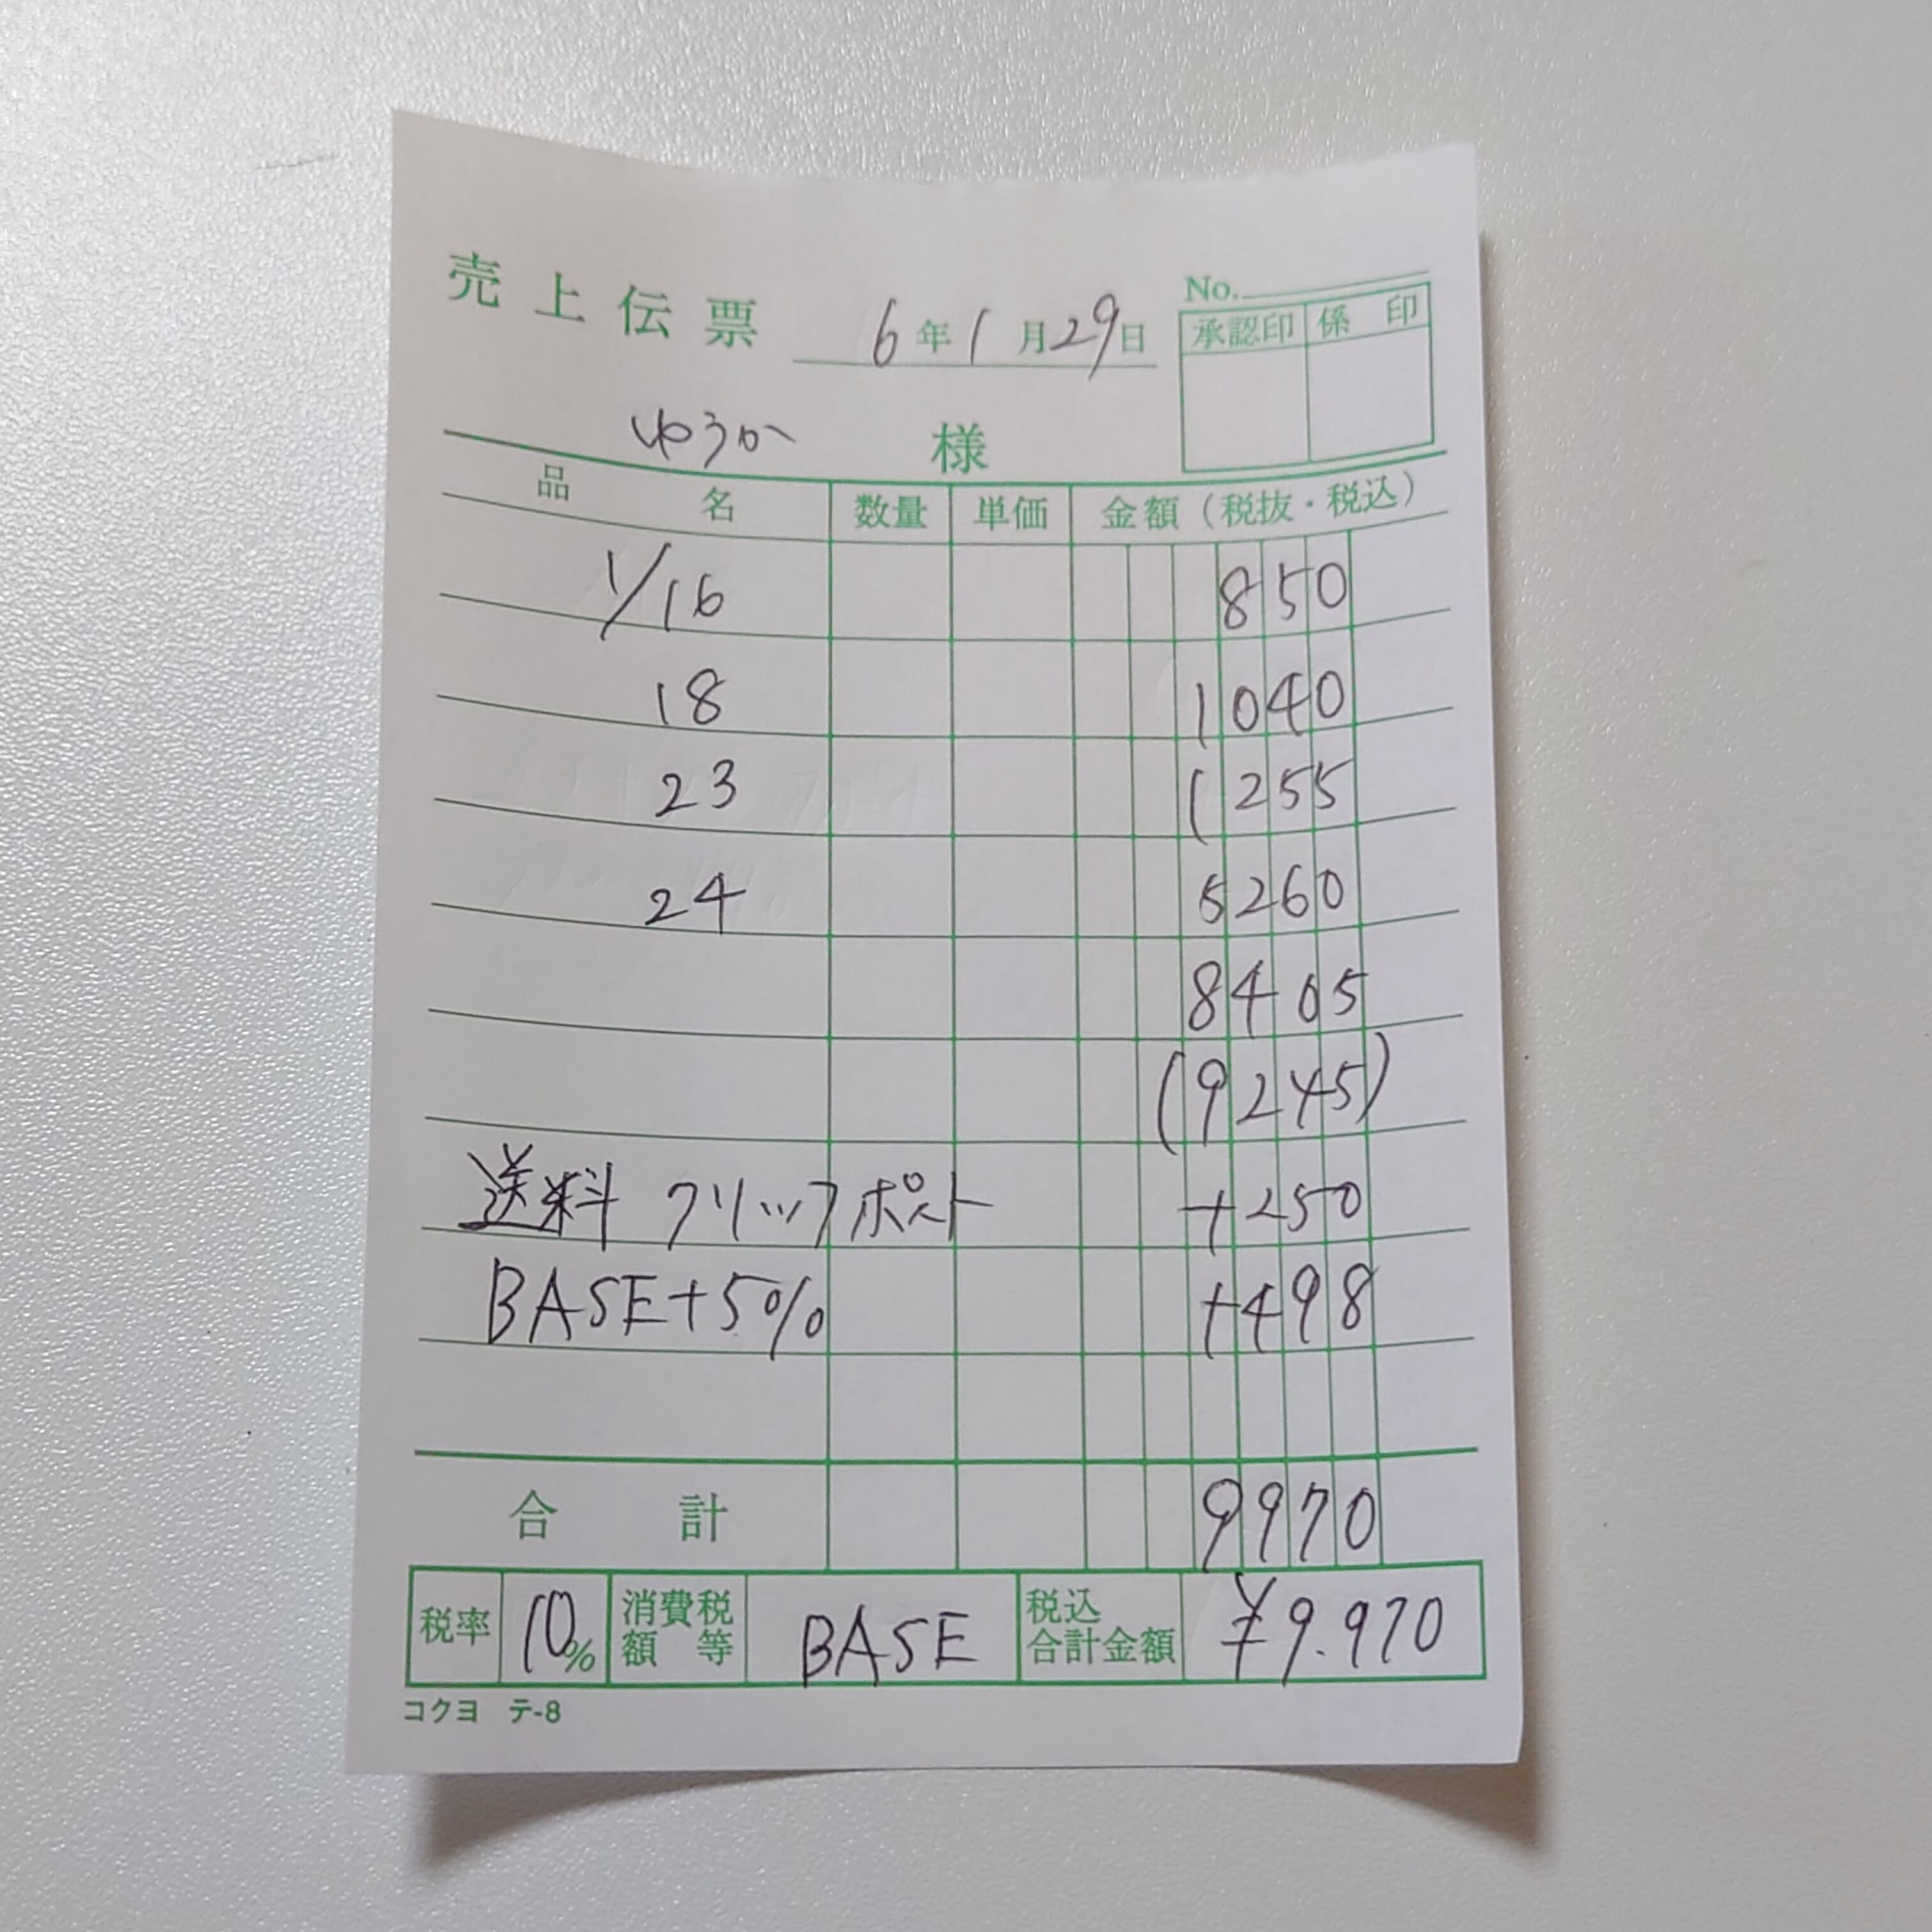 売上伝票 6年1月29日
No.
承認印 係印
ゆうか 様
品名 数量 単価 金額(税抜・税込)
1/16 850
18 1040
23 1255
24 5260
8405
(9245)
送料 クリックポスト +250
BASE+5% +498
合計 9970
税率 10% 消費税額等 BASE 税込合計金額 ¥9.970
コクヨ テ-8